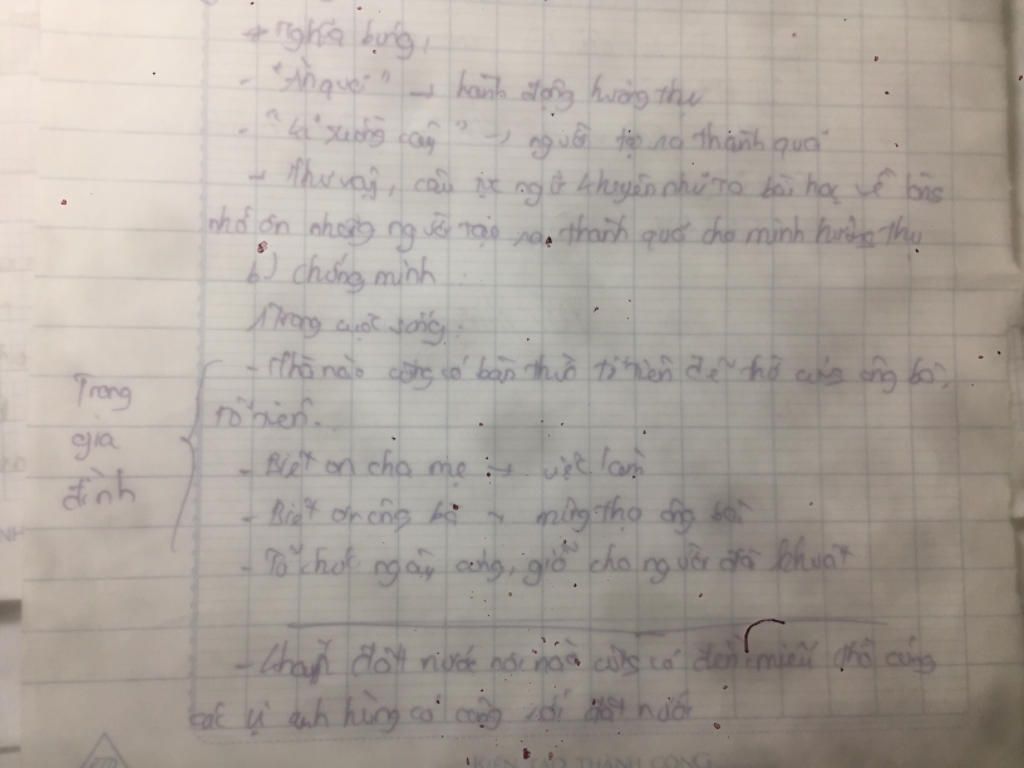 + Nghĩa bóng:
- "Ăn quả" → hành động hưởng thụ
- → người tạo ra thành quả
- Như vậy, câu tục ngữ khuyên nhủ ta bài học về
nhớ ơn những người tạo ra thành quả cho mình hưởng thụ
b) Chứng minh :
Trong cuộc sống:
- Nhà nào cũng có bàn thờ tổ tiên để thờ cúng ông bà,
Trong
gia
đình
tổ tiên.
- Biết ơn cha mẹ → việc làm
- Biết ơn ông bà → mừng thọ ông bà.
- Tổ chức ngày cúng, giỗ cho người đã khuất
- đất nước nơi nào cũng có đền, miếu thờ cúng
các vị anh hùng có công với đất nước
KIẾN TẠO THÀNH CÔNG